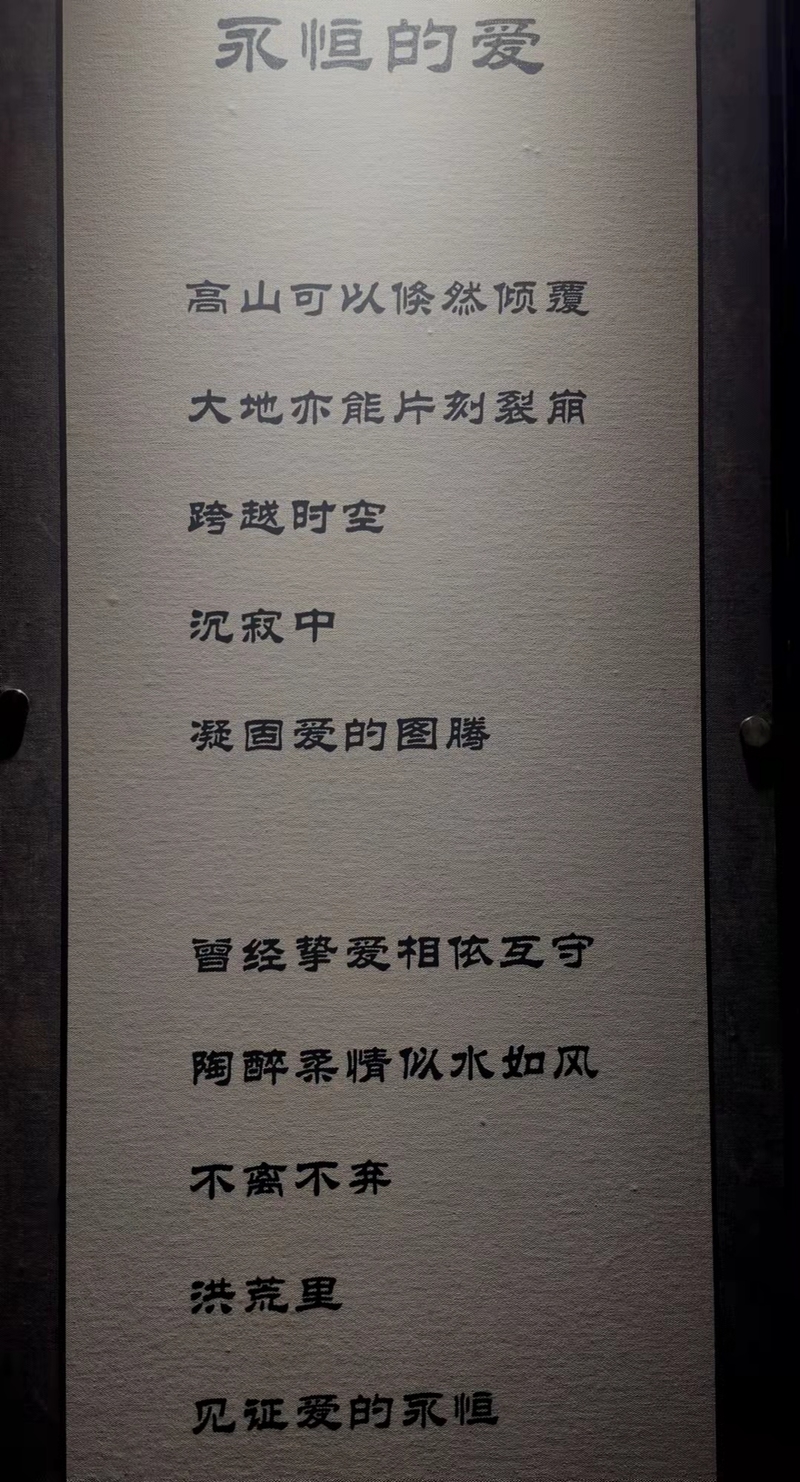 永恒的爱
高山可以倏然倾覆
大地亦能片刻裂崩
跨越时空
沉寂中
凝固爱的图腾
曾经挚爱相依互守
陶醉柔情似水如风
不离不弃
洪荒里
见证爱的永恒